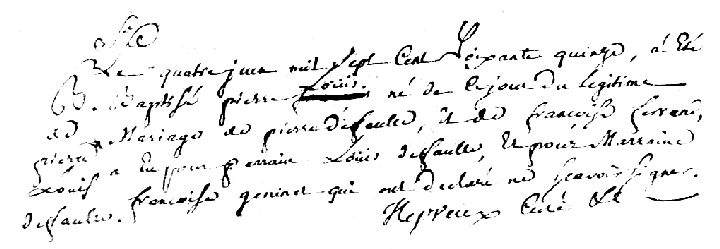 Le quatre juin mil sept cent soixante quinze, a été
B. Baptisé pierre Loüis né de ce jour du légitime
de Mariage de pierre desaules, et de françoise
pierre a eu pour parrain Loüis desaules, et pour Marraine
Loüis françoise geninet qui ont declaré ne scavoir signer.
desaules. Curé